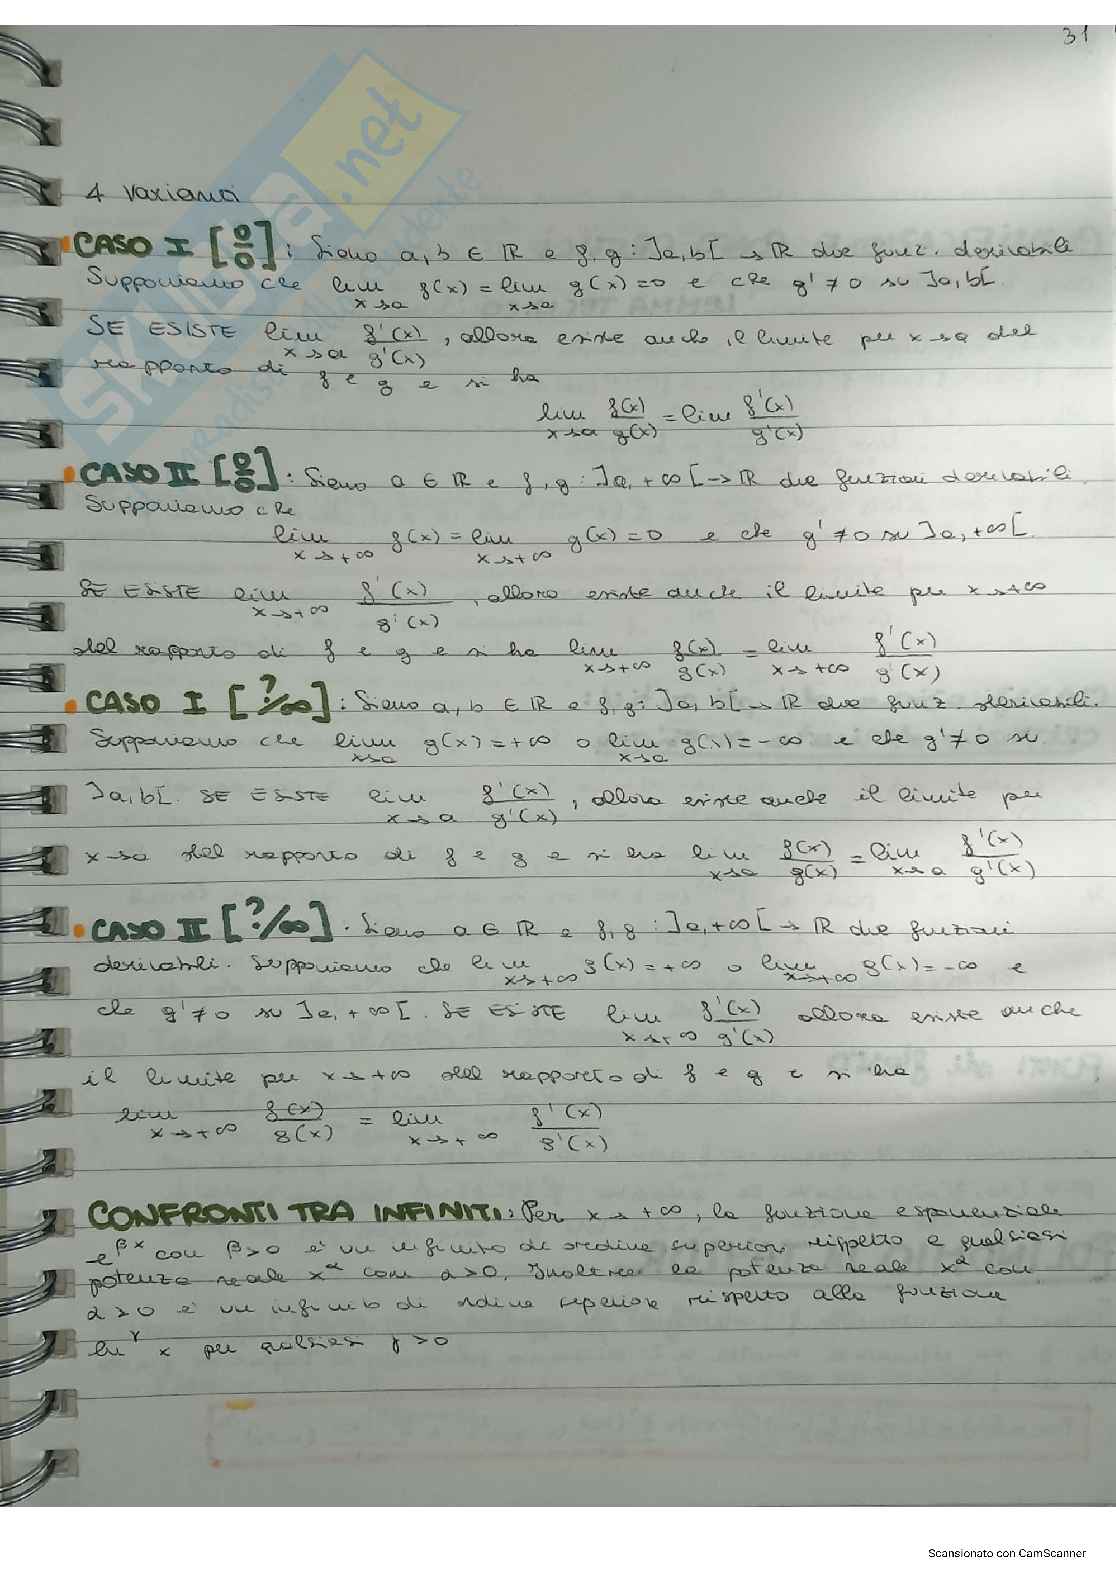 31
4 varianti
CASO I [0/0]: Siano a, b ∈ ℝ e f, g : ]a, b[ → ℝ due funz. derivabili
Supponiamo che lim x→a f(x) = lim x→a g(x) = 0 e che g' ≠ 0 su ]a, b[.
SE ESISTE lim x→a f'(x)/g'(x), allora esiste anche il limite per x→a del
rapporto di f e g e si ha
lim x→a f(x)/g(x) = lim f'(x)/g'(x)
CASO II [0/0]: Siano a ∈ ℝ e f, g : ]a, +∞[ → ℝ due funzioni derivabili.
Supponiamo che
lim x→+∞ f(x) = lim x→+∞ g(x) = 0 e che g' ≠ 0 su ]a, +∞[.
SE ESISTE lim x→+∞ f'(x)/g'(x), allora esiste anche il limite per x→+∞
del rapporto di f e g e si ha lim x→+∞ f(x)/g(x) = lim x→+∞ f'(x)/g'(x)
CASO I [?/∞]: Siano a, b ∈ ℝ e f, g : ]a, b[ → ℝ due funz. derivabili.
Supponiamo che lim x→a g(x) = +∞ o lim x→a g(x) = -∞ e che g' ≠ 0 su
]a, b[. SE ESISTE lim x→a f'(x)/g'(x), allora esiste anche il limite per
x→a del rapporto di f e g e si ha lim x→a f(x)/g(x) = lim x→a f'(x)/g'(x)
CASO II [?/∞]. Siano a ∈ ℝ e f, g : ]a, +∞[ → ℝ due funzioni
derivabili. Supponiamo che lim x→+∞ g(x) = +∞ o lim x→+∞ g(x) = -∞ e
che g' ≠ 0 su ]a, +∞[. SE ESISTE lim x→+∞ f'(x)/g'(x) allora esiste anche
il limite per x→+∞ del rapporto di f e g e si ha
lim x→+∞ f(x)/g(x) = lim x→+∞ f'(x)/g'(x)
CONFRONTI TRA INFINITI: Per x→+∞, la funzione esponenziale
e^βx con β>0 è un infinito di ordine superiore rispetto a qualsiasi
potenza reale x^α con α>0. Inoltre la potenza reale x^α con
α>0 è un infinito di ordine superiore rispetto alla funzione
ln^γ x per qualsiasi γ>0
Scansionato con CamScanner